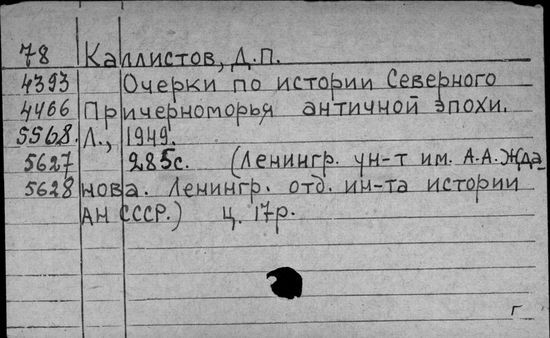 78 Каллистов, Д.П.
4393 Очерки по истории Северного
4466 Причерноморья античной эпохи.
5568. Л., 1949.
5627 285с. (Ленингр. ун-т им. А.А.Жда-
5628 нова. Ленингр. отд. ин-та истории
АН СССР.) ц. 17р.
г